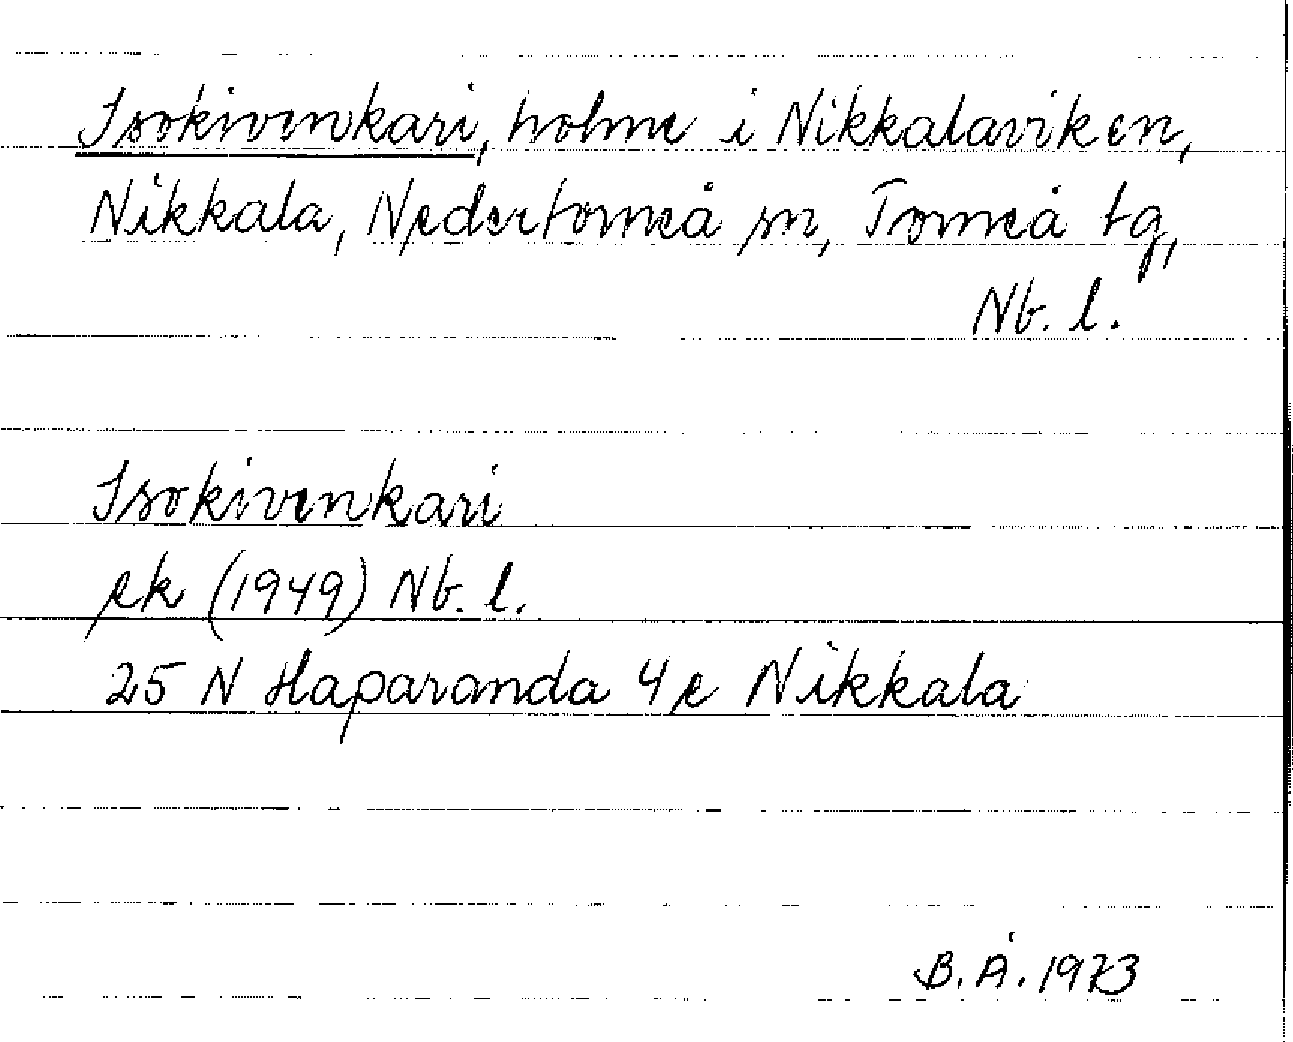 Isokivenkari, holme i Nikkalaviken,
Nikkala, Nedertorneå sn, Torneå tg,
Nb. l.
Isokivenkari
ek (1949) Nb. l.
25 N Haparanda 4 e Nikkala
B. Å. 1973